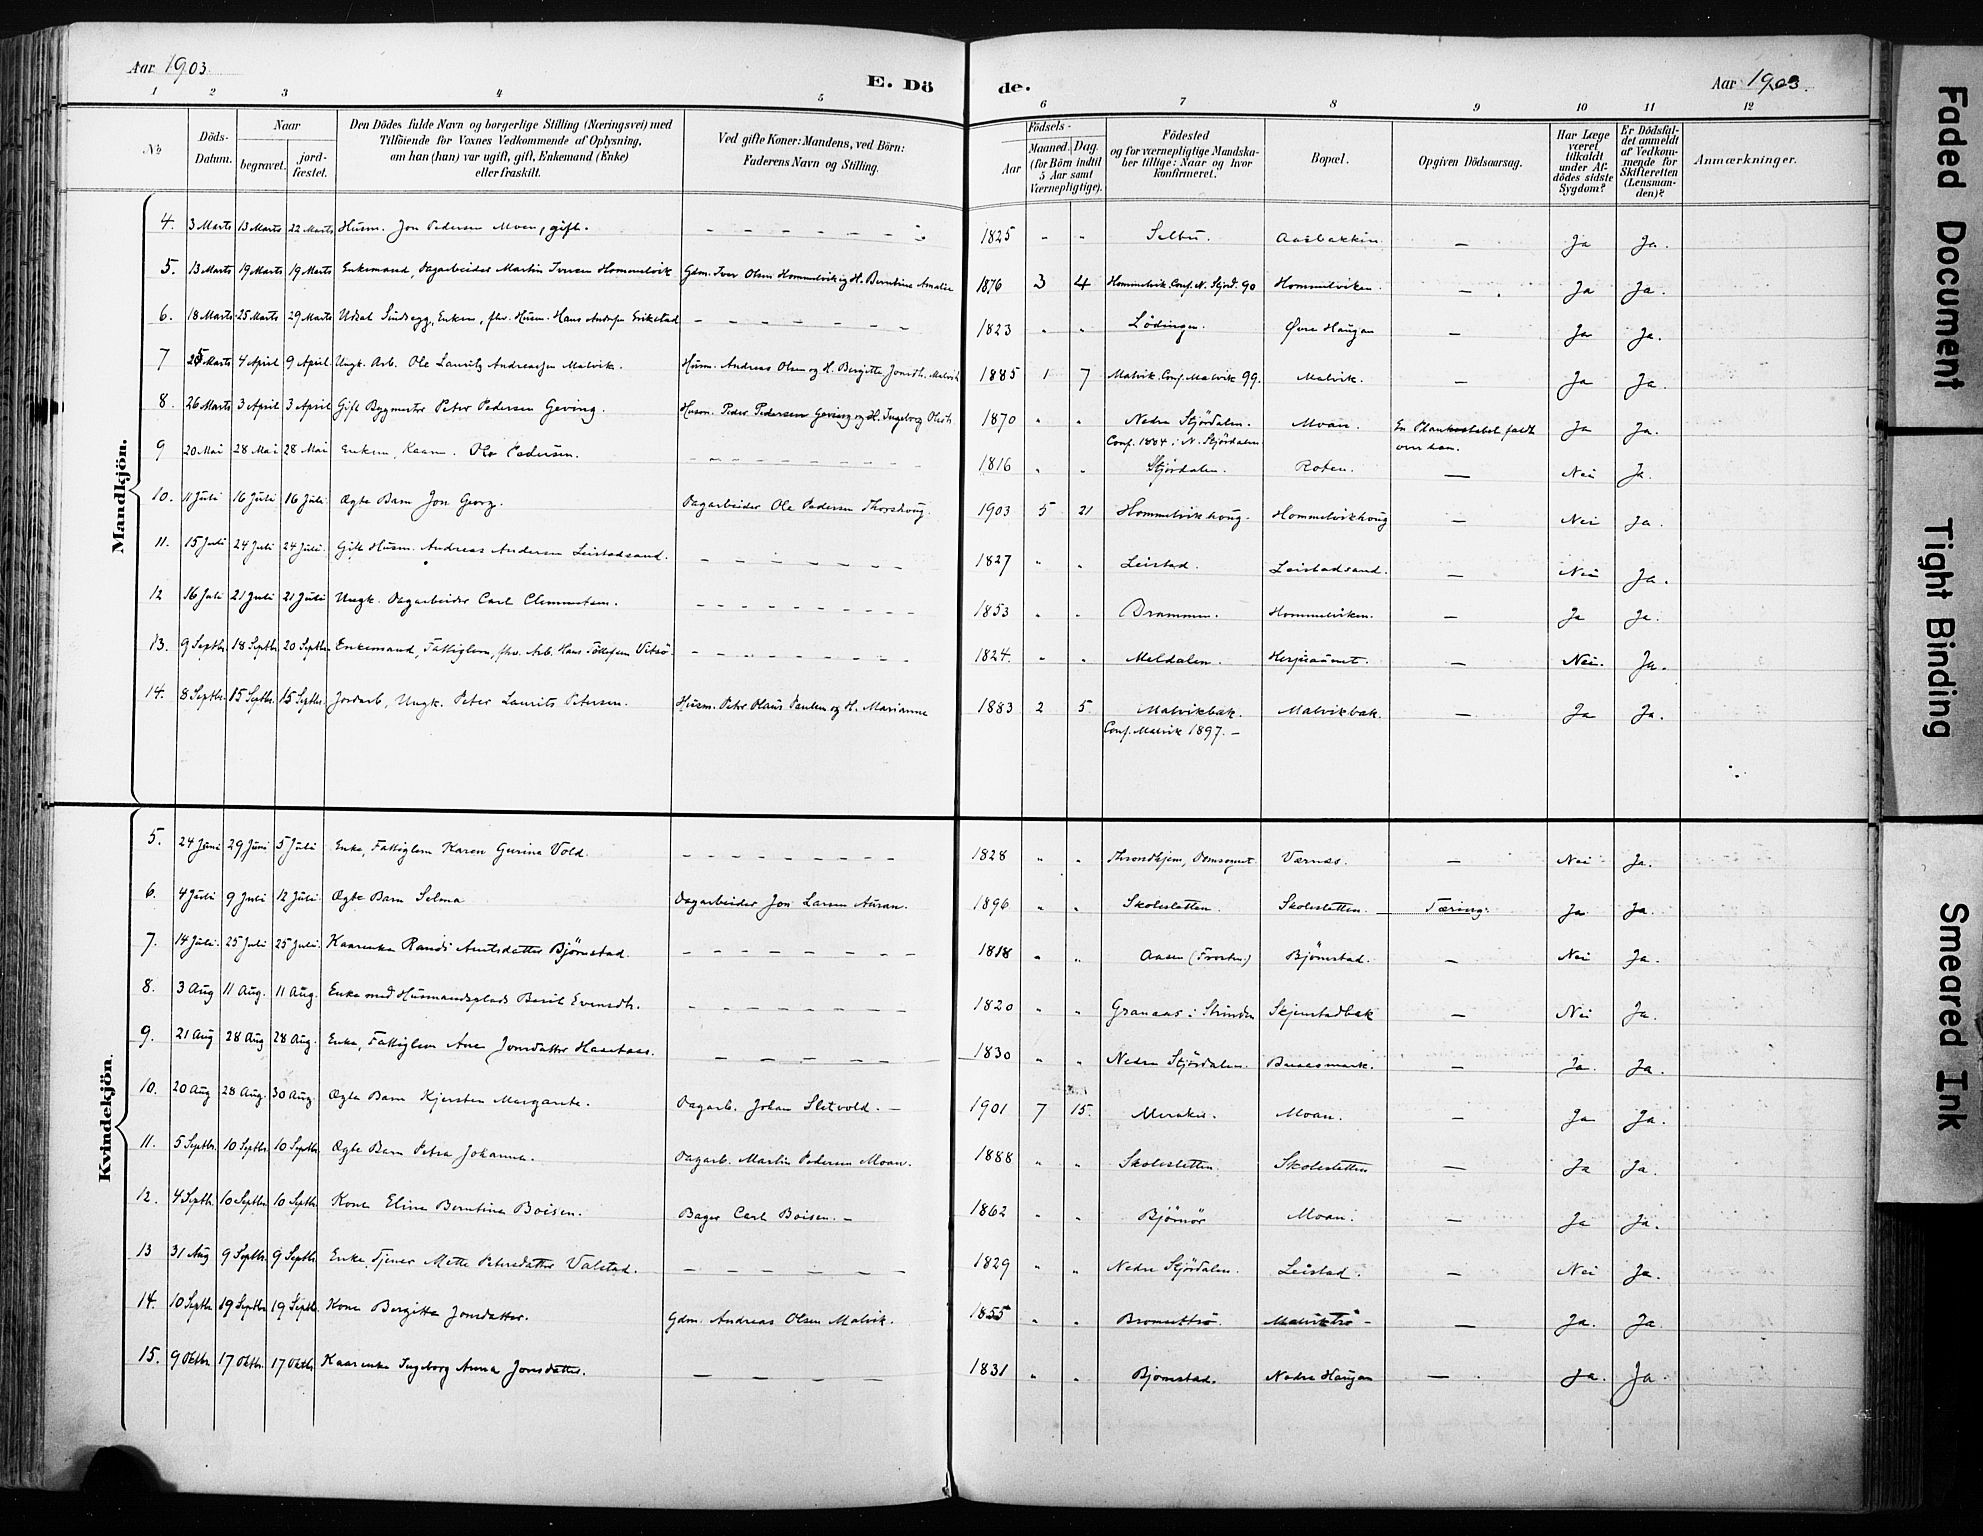 Aar 1903
E. Dö
de.
Aar 1903.
1 2 3 4 5 6 7 8 9 10 11 12
No
Döds-Datum.
Naar
begravet.
jord-fæstet.
Den Dödes fulde Navn og borgerlige Stilling (Næringsvei) med
Tilföiende för Voxnes Vedkommende af Oplysning,
om han (hun) var ugift, gift, Enkemand (Enke)
eller fraskilt.
Ved gifte Koner: Mandens, ved Börn:
Faderens Navn og Stilling.
Födsels-
Aar
Maaned. Dag.
(for Börn indtil
5 Aar samt
Værnepligtige).
Födested
og for værnepligtige Mandska-
ber tillige: Naar og hvor
konfirmeret.
Bopæl.
Opgiven Dödsaarsag.
Har Læge
været
tilkaldt
under Af-
dödes sidste
Sygdom?
Er Dödsfal-
det anmeldt
af Vedkom-
mende for
Skifteretten
(Lensman-
den)?
Anmærkninger.
Mandkjön.
4. 3 Marts 13 Marts 22 Marts Husm. Jon Pedersen Moen, gift. 1825 " " Selbu. Aasbakken — Ja Ja.
5. 13 Marts 19 Marts 19 Marts Enkemand, Dagarbeider Martin Iversen Hommelvik Gdm. Iver Olsen Hommelvik og H. Berntine Amalie 1876 3 4 Hommelvik. Conf. N. Stjörd. 90 Hommelviken. — Ja Ja.
6. 18 Marts 25 Marts 29 Marts Enkem, fhv. Husm. Hans 1823 " " Lödingen. Øvre Haugan — Ja Ja.
7 25 Marts 4 April 9 April Ungk. Arb. Ole Lauritz Andreassen Malvik. Husm. Andreas Olsen og H. Bergitte Jonsdt. Malvik 1885 1 7 Malvik. Conf. Malvik 99. Malvik. — Ja Ja.
8. 26 Marts 3 April 3 April Gift Bygmester Peter Pedersen Geving. Husm. Peder Pedersen Geving og H. Ingeborg Olsdt. 1870 " " Nedre Stjördalen. Moan. En Plankestabel faldt Ja Ja.
Conf. 1884 i N. Stjördalen over ham.
9 20 Mai 28 Mai 28 Mai Enkem, Kaarm. Pedersen. 1816 " " Stjördalen. Roten. — Nei Ja.
10. 11 Juli 16 Juli 16 Juli Ægte Barn Jon Georg. Dagarbeider Ole Pedersen Thorshoug. 1903 5 21 Hommelvikhoug. Hommelvikhoug — Nei Ja.
11. 15 Juli 24 Juli 24 Juli. Gift Husm. Andreas Andersen Leistadsand. 1827 " " Leistad. Leistadsand. — Nei Ja.
12 16 Juli 21 Juli 21 Juli Ungk. Dagarbeider Carl Clemmetsen. 1853 " " Drammen. Hommelviken. — Ja Ja.
13. 9 Septbr. 18 Septbr. 20 Septbr. Enkemand, Fattiglem, fhv. Arb. Hans Vitsö. 1824. " " Meldalen. — Nei. Ja.
14. 8 Septbr. 15 Septbr. 15 Septbr. Jordarb, Ungk. Peter Laurits Petersen. Husm. Peter Olaus Paulsen og H. Marianne 1883 2 5 Malvikbak. Malvikbak. — Ja Ja.
Conf. Malvik 1897. —
Kvindekjön.
5. 24 Juni 29 Juni 5 Juli Enke, Fattiglem Karen Gurina Vold. 1828 " " Throndhjem, Domsognet Værnes. — Nei Ja.
6. 4 Juli 9 Juli 12 Juli. Ægte Barn Selma Dagarbeider Jon Larsen Auran. 1896 " " Skolesletten. Skolesletten. Tæring. Ja Ja.
7. 14 Juli. 25 Juli 25 Juli. Kaarenke Randi Arntsdatter Bjørnstad. 1818 " " Aasen (Frosten) Bjömstad. — Nei Ja.
8. 3 Aug 11 Aug. 11 Aug. Enke med Husmandsplads Berit Evensdtr. 1820 " " Granaas i Strinden Skjenstadbak — Nei Ja.
9. 21 Aug 28 Aug 28 Aug. Enke, Fattiglem Ane Jonsdatter 1830 " " Nedre Stjördalen. — Ja. Ja.
10. 20 Aug 28 Aug. 30 Aug. Ægte Barn Kjersten Margarete. Dagarb. Johan Sletvold. — 1901 7 15. Meraker. Moan. — Ja Ja.
11. 5 Septbr. 10 Septbr. 10 Septbr. Ægte Barn Petra Johanna. Dagarb. Martin Pedersen Moan. 1888 " " Skolesletten. Skolesletten — Ja Ja.
12. 4 Septbr. 10 Septbr. 10 Septbr. Kone Eline Berntine Boisen. Bager Carl Boisen. — 1862 " " Bjørnör Moan. — Ja Ja.
13 31 Aug 9 Septbr. 9 Septbr. Enke, Tjener Mette Petersdatter Valstad. 1829 " " Nedre Stjördalen. Leistad. — Nei Ja.
14. 10 Septbr 19 Septbr 19 Septbr. Kone Bergitta Jonsdatter. Gdm. Andreas Olsen Malvik. 1855 " " Malviktrö — Ja. Ja.
15. 9 Oktbr. 17 Oktbr. 17 Oktbr. Kaarenke Ingeborg Anna Jonsdatter. 1831 " " Bjömstad. Nedre Haugan — Ja. Ja.
Faded Document
Tight Binding
Smeared Ink